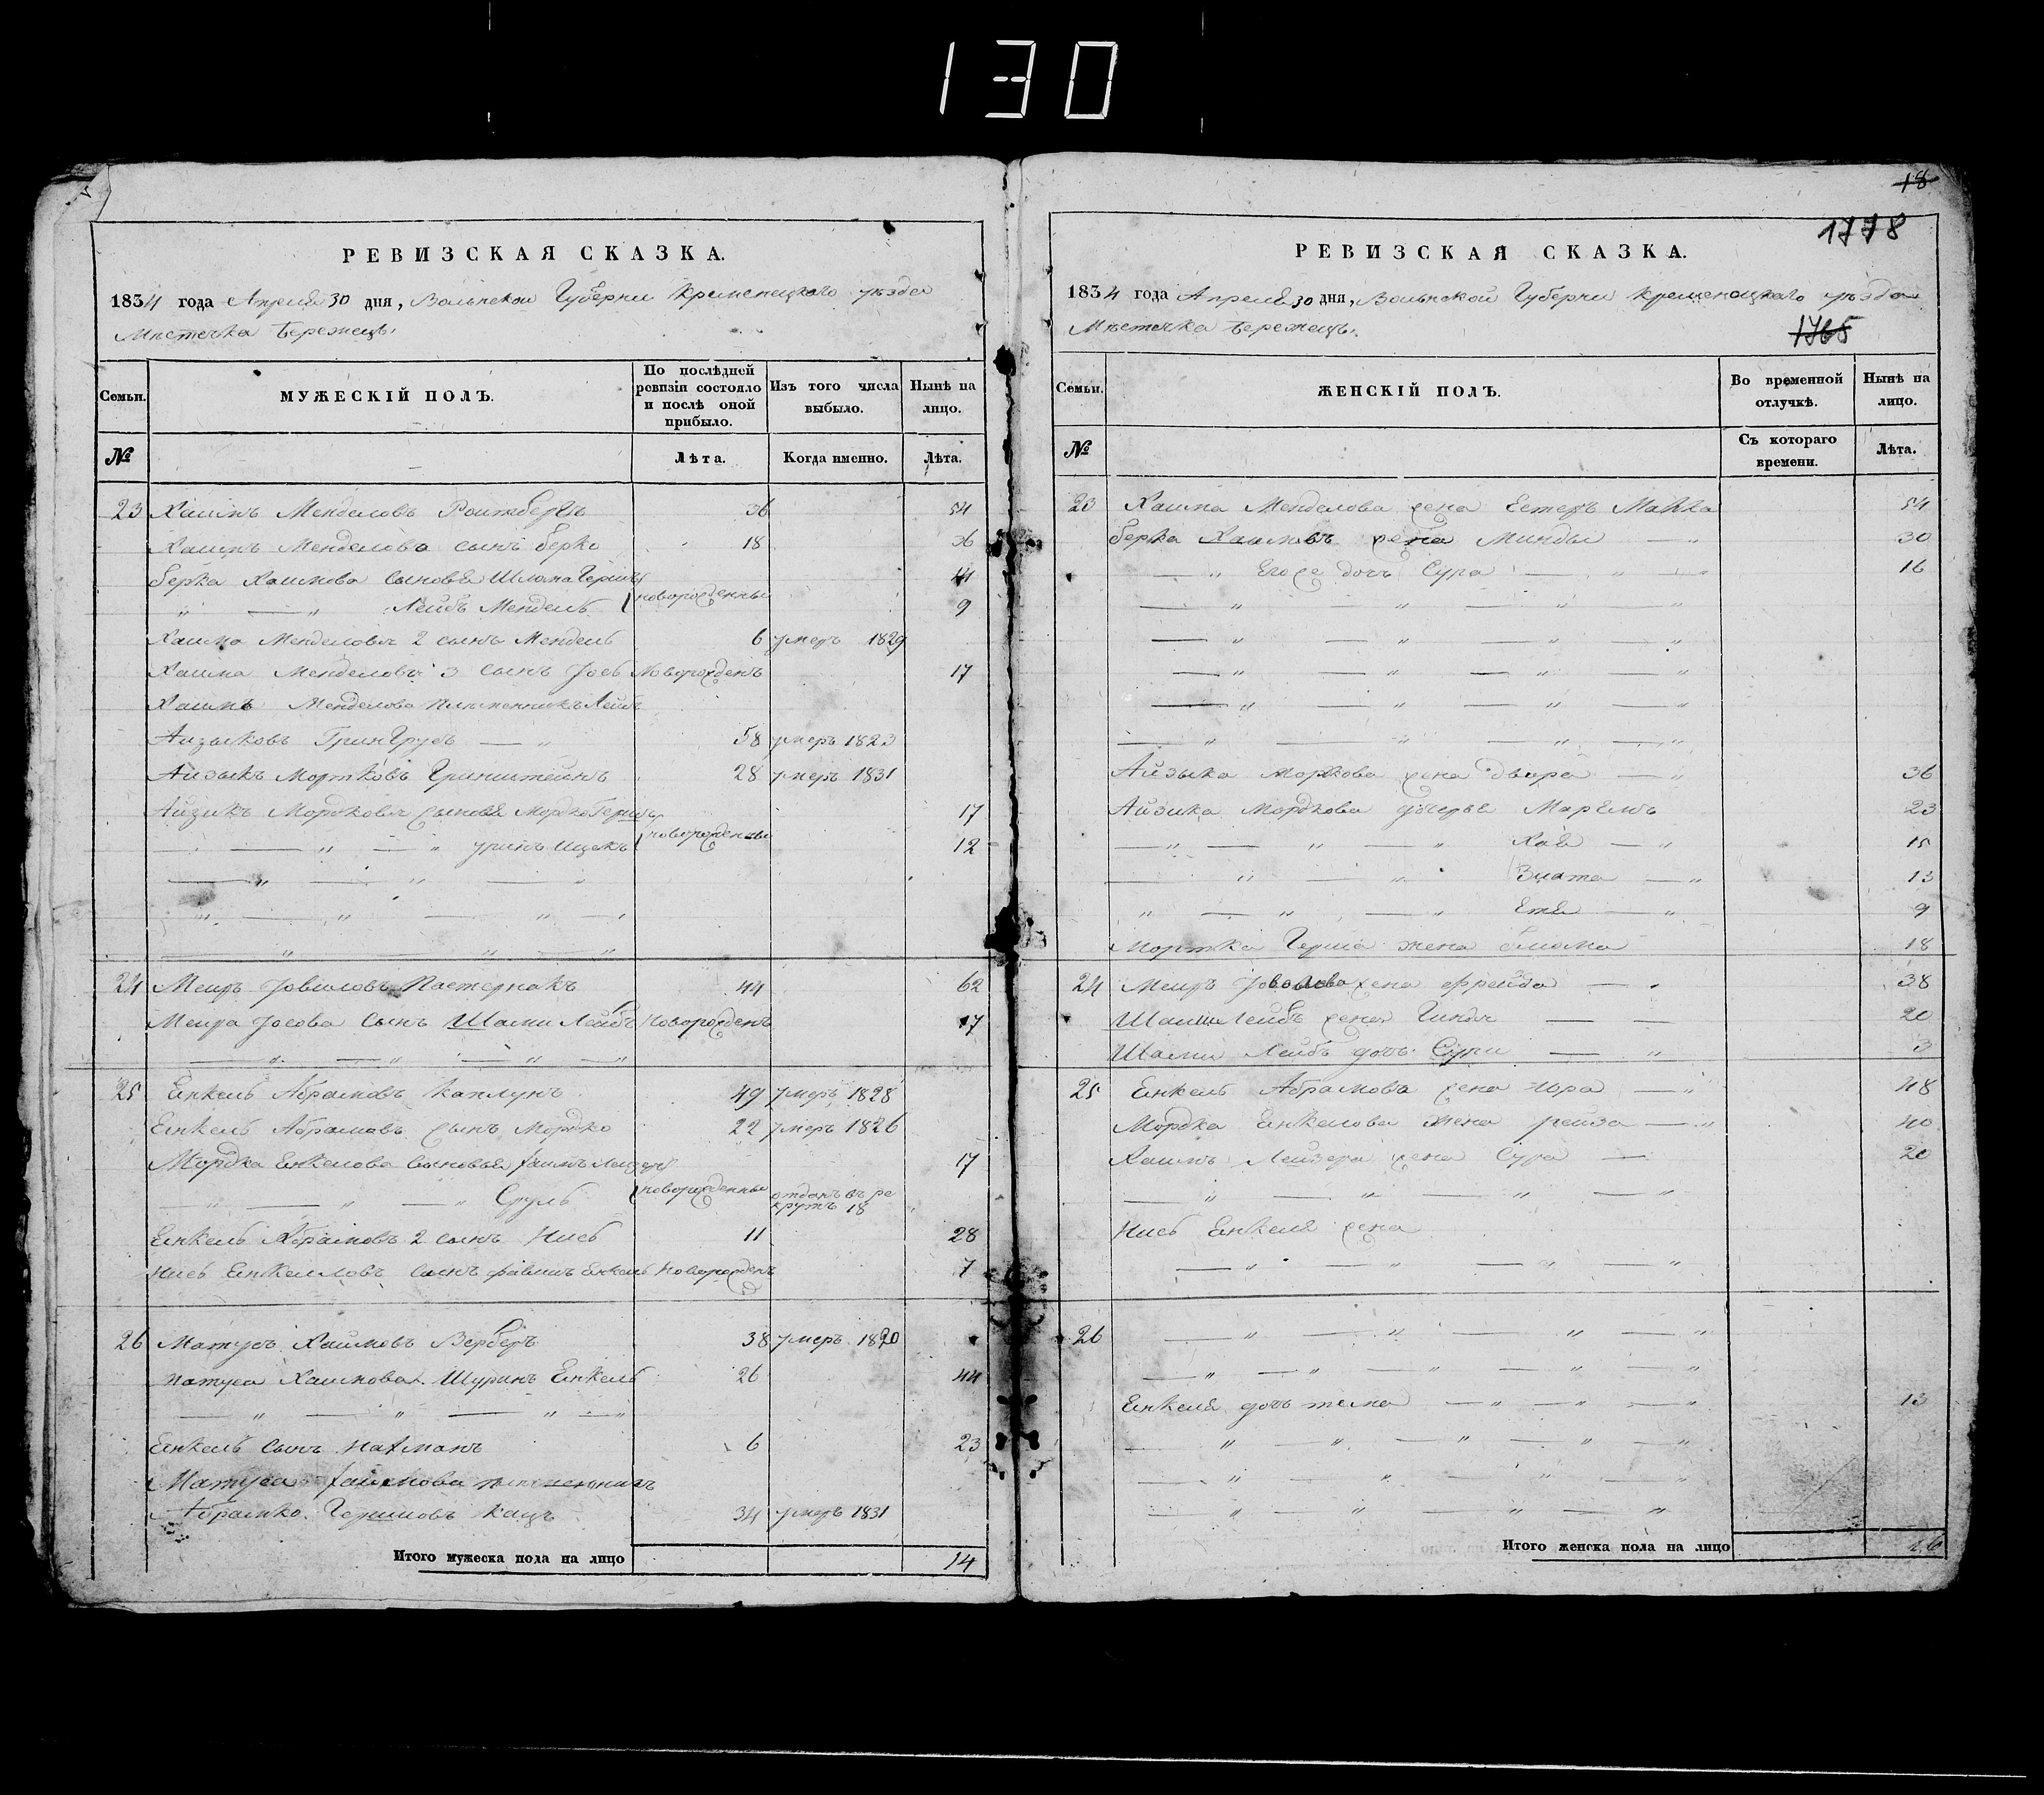 130
РЕВИЗСКАЯ СКАЗКА.
1834 года Апреля 30 дня, Волынской Губерни Кременецкого уезда
Местечка Бережецъ
Семьи. МУЖЕСКІЙ ПОЛЪ. По послѣдней ревизіи состояло и послѣ оной прибыло. Изъ того числа выбыло. Нынѣ на лицо.
№ Лѣта. Когда именно. Лѣта.
23 Хаимъ Менделовъ Роитбергъ 36 54
Хаимъ Менделова сынъ Берко 18 36
Берка Хаимова сыновья Шлома Гершъ новорожденны
" — " Лейбъ Мендель 9
Хаима Менделова 2 сынъ Мендель 6 умеръ 1829
Хаима Менделова 3 сынъ Іосъ Новорожденъ 17
Хаимъ Менделова племенникъ Лейбъ
Аизыковъ ГринГрубъ — " 58 умеръ 1823
Айзыкъ Мортковъ Гринштейнъ 28 умеръ 1831
Айзикъ Мордкова сыновя Мордко Гершъ 17
— — " — " Ицекъ новорожденны 12
— " — " — "
" — " — " — "
— " — " — "
24 Меиръ Пастернакъ 44 62
Меира Іосова сынъ Шами Лейбъ Новорожденъ 17
— " — " — " — "
25 Енкель Абрамовъ Каплунъ 49 умеръ 1828
Енкель Абрамовъ сынъ Мордко 22 умеръ 1826
Мордка Енкелова сыновья 17
— " — " — " Сруль новорожденны отданъ въ рекрутъ 18
Енкель Абрамовъ 2 сынъ Нись 11 28
Нись Енкелловъ сынъ Енкель Новорожденъ 7
26 Матусъ Хаимовъ Верберъ 38 умеръ 1820
Матуса Хаимова Шуринъ Енкель 26 44
— " — " — " — "
Енкель сынъ Нахманъ 6 23
Матуса Хаимова племенникъ
Абрамко Гершковъ Кацъ 34 умеръ 1831
Итого мужеска пола на лицо 14
18
1778
РЕВИЗСКАЯ СКАЗКА.
1834 года Апреля 30 дня, Волынской Губерни Кременецкого уезда
Мѣстечка Бережецъ.
1765
Семьи. ЖЕНСКІЙ ПОЛЪ. Во временной отлучкѣ. Нынѣ на лицо.
№ Съ котораго времени. Лѣта.
23 Хаима Менделова жена Естеръ Малка 54
Берка Хаимовъ жена Минды — " 30
— " Егоже дочъ Сура — " — " 16
— " — " — " — "
— " — " — " — "
— " — " — " — "
— " — " — " — "
— " — " — " — "
Айзыка Моркова жена Двора — " 36
Айзика Мордкова дочерье 23
— " — " — " Хая — " 15
— " — " Злата — " 13
" — " — " Етя — " 9
Мортка Герша жена 18
24 Меиръ жена Фрейда — " 38
Шами Лейбъ жена Гинда — — 20
Шами Лейбъ дочъ Сури — " 3
25 Енкель Абрамова жена — " 48
Мордка Енкелова жена рейза — " 40
Хаимъ Лейзера жена Сура — 20
— " — " — " — "
Нись Енкеля жена
— " — " — " — "
26 — " — " — " — "
— " — " — " — " — "
Енкеля дочъ тема — " — " — " 13
— " — " — " — " — "
— " — " — " — "
— " — " — " — "
Итого женска пола на лицо 16